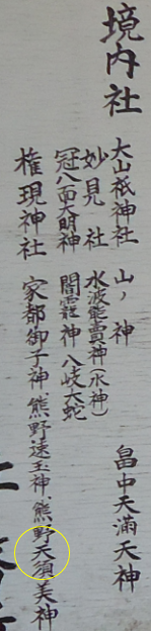 境内社
大山祇神社 山ノ神 畠中天満天神
妙見社 水波能賣神(水神)
冠八面大明神 闇靇神 八岐大蛇
権現神社 家都御子神 熊野速玉神 熊野天須美神